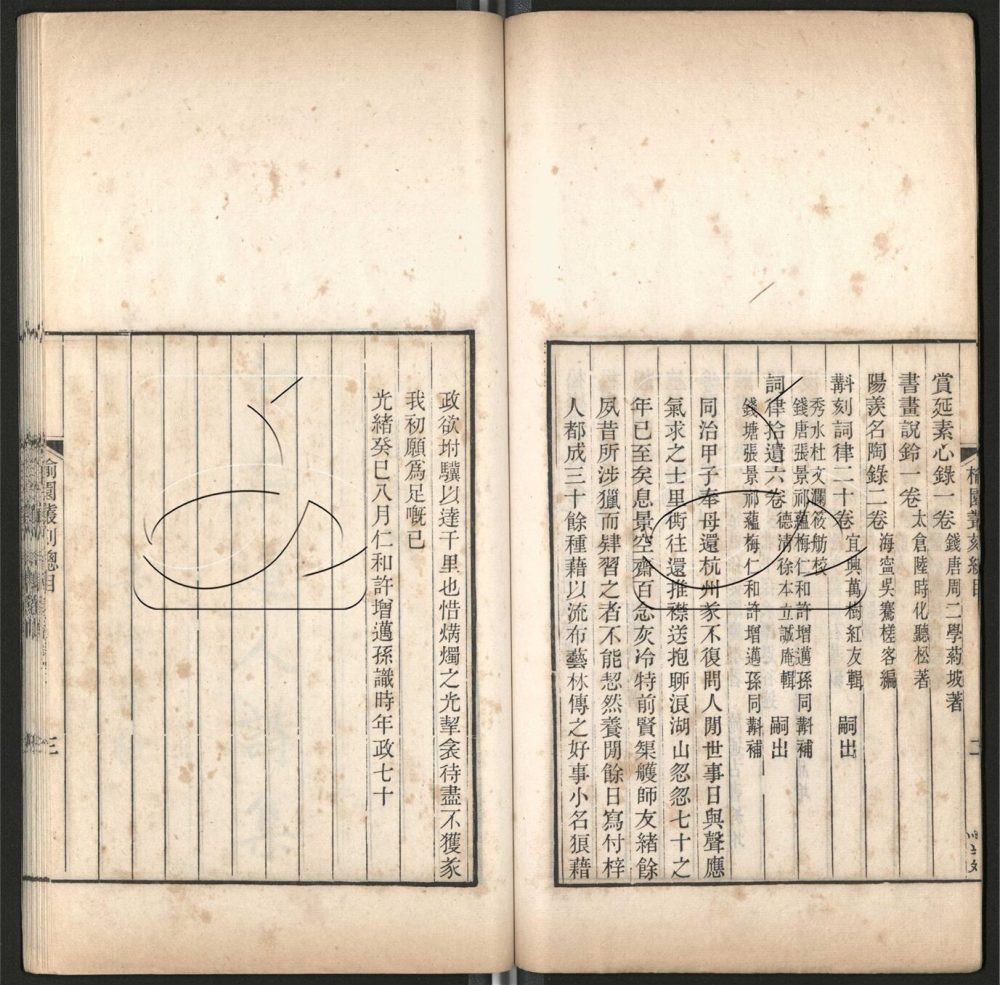 賞延素心錄一卷 錢唐周二學菊坡著
書畫說鈴一卷 太倉陸時化聽松著
陽羨名陶錄二卷 海寧吳騫槎客編
斠刻詞律二十卷 宜興萬樹紅友輯 嗣出
秀水杜文瀾筱舫校
錢唐張景祁蘊梅仁和許增邁孫同斠補
詞律拾遺六卷 德清徐本立誠庵輯 嗣出
錢塘張景祁蘊梅仁和許增邁孫同斠補
同治甲子奉母還杭州家不復問人閒世事日與聲應
氣求之士里衖往還推襟送抱聊浪湖山忽忽七十之
年已至矣息景空齋百念灰冷特前賢榘矱師友緒餘
夙昔所涉獵而肄習之者不能恝然養閒餘日寫付梓
人都成三十餘種藉以流布藝林傳之好事小名狽藉
榆園叢刻總目
二
政欲坿驥以達千里也惜爝燭之光挈衾待盡不獲家
我初願為足嘅已
光緒癸巳八月仁和許增邁孫識時年政七十
榆園叢刻總目
三